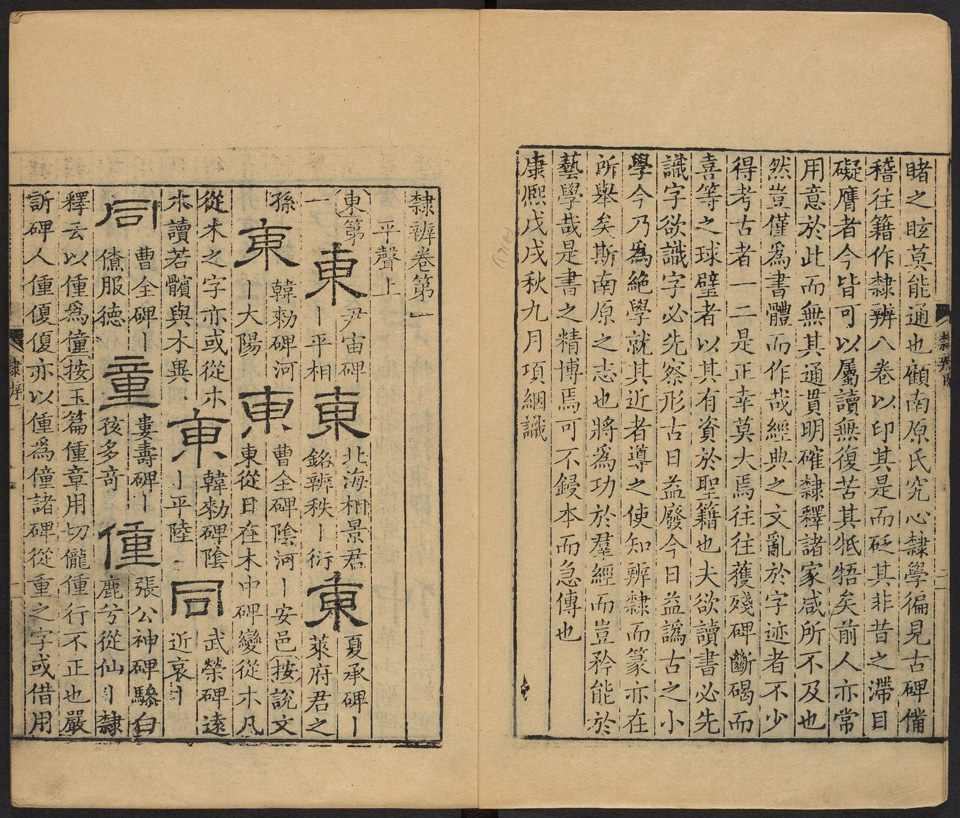 睹之眩莫能通也顧南原氏究心隸學徧見古碑備
稽往籍作隸辨八卷以印其是而砭其非昔之滯目
礙膺者今皆可以屬讀無復苦其牴牾矣前人亦常
用意於此而無其通貫明確隸釋諸家咸所不及也
然豈僅爲書體而作哉經典之文亂於字迹者不少
得考古者一二是正幸莫大焉往往獲殘碑斷碣而
喜等之球璧者以其有資於聖籍也夫欲讀書必先
識字欲識字必先察形古日益廢今日益譌古之小
學今乃爲絶學就其近者導之使知辨隸而篆亦在
所舉矣斯南原之志也將為功於羣經而豈矜能於
藝學哉是書之精博焉可不鋟本而急傳也
康熙戊戌秋九月項絪識
隸辨
二
隸辨卷第一
平聲上
東第一
東 尹宙碑丨平相
東 北海相景君銘辨秩丨衍
東 夏承碑丨萊府君之孫
東 韓勑碑河丨大陽
東 曹全碑陰河丨安邑按說文東從日在木中碑變從木凡從木之字亦或從朩朩讀若髕與木異
東 韓勑碑陰丨平陸
同 武榮碑遠近哀丨
同 曹全碑丨僚服德
童 婁壽碑丨孩多奇
僮 張公神碑驂白鹿兮從仙丨隸釋云以僮爲僮按玉篇僮章用切儱僮行不正也嚴訢碑人僮傁傁亦以僮爲僮諸碑從重之字或借用
隸序